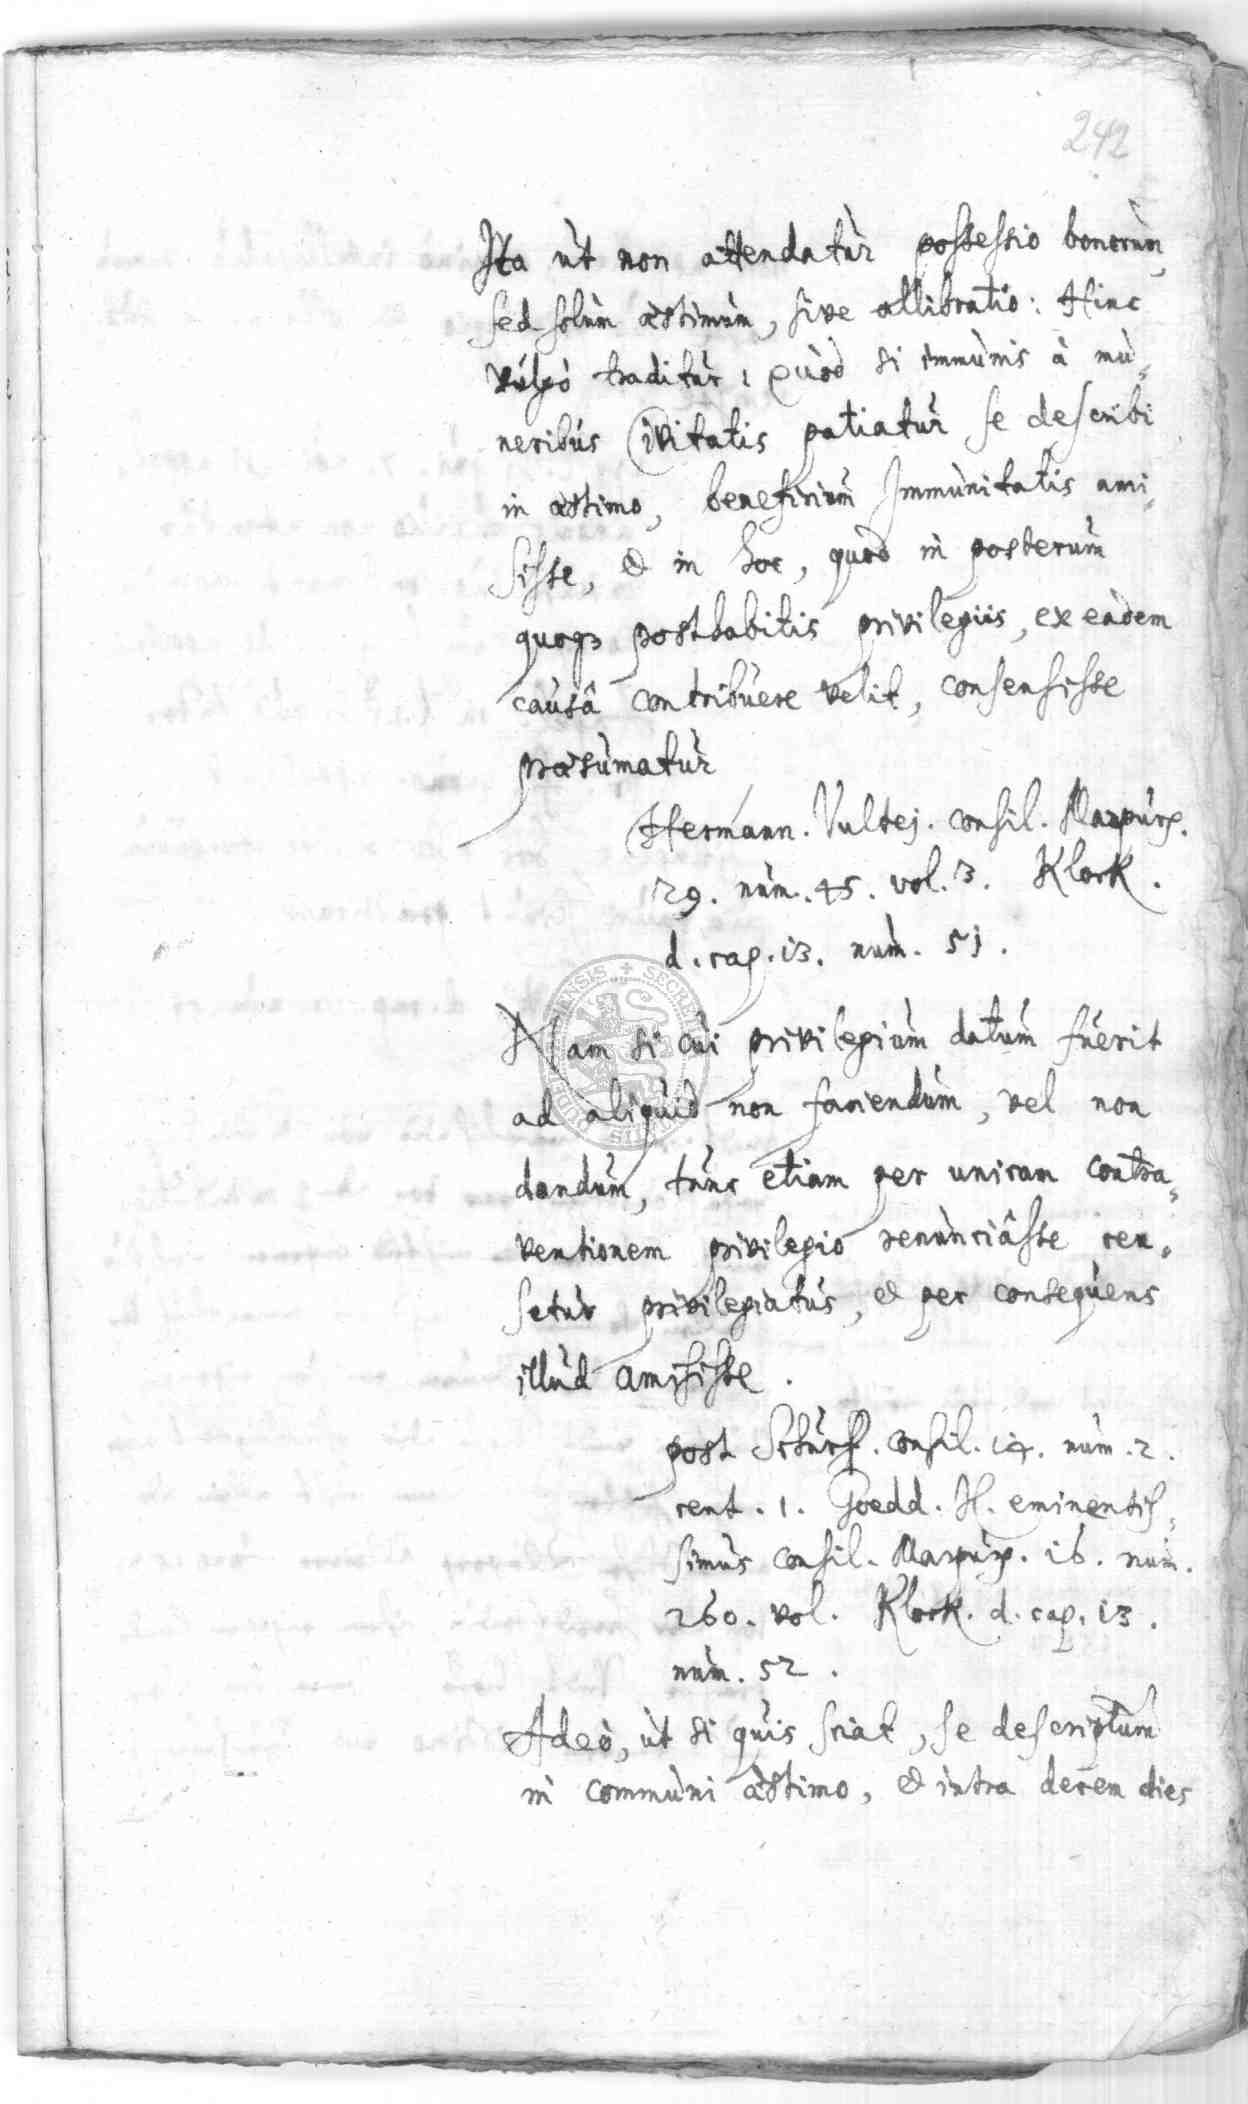 242
Ita ùt non attendatùr possessio bonorùm,
sed solùm æstimùm, sive allibratio: Hinc
vùlgò traditùr, quòd si immùnis à mù,
neribùs Civitatis patiatùr se describi
in æstimo, beneficiùm Immùnitatis ami,
sisse, & in hoc, quod in posterùm
quoq3 posthabitis privilegiis, ex eàdem
caùsâ contribùere velit, consensisse
præsùmatùr
Hermann. Vultej. consil. Marpùrg.
29. nùm. 45. vol. 3. Klock.
d. cap. 13. nùm. 51.
Nam si cùi privilegiùm datùm fùerit
ad aliqùid non faciendùm, vel non
dandùm, tùnc etiam per unicam contra,
ventionem privilegio renùnciâsse cen,
setùr privilegiatùs, & per conseqùens
illùd amisisse.
post Schùrff. consil. 14. nùm. 2.
cent. 1. Goedd. H. eminentis,
simùs consil. Marpùrg. 16. nùm.
260. vol. Klock. d. cap. 13.
nùm. 52.
Adeò, ùt si qùis sciat, se descriptùm
in commùni æstimo, & intra decem dies